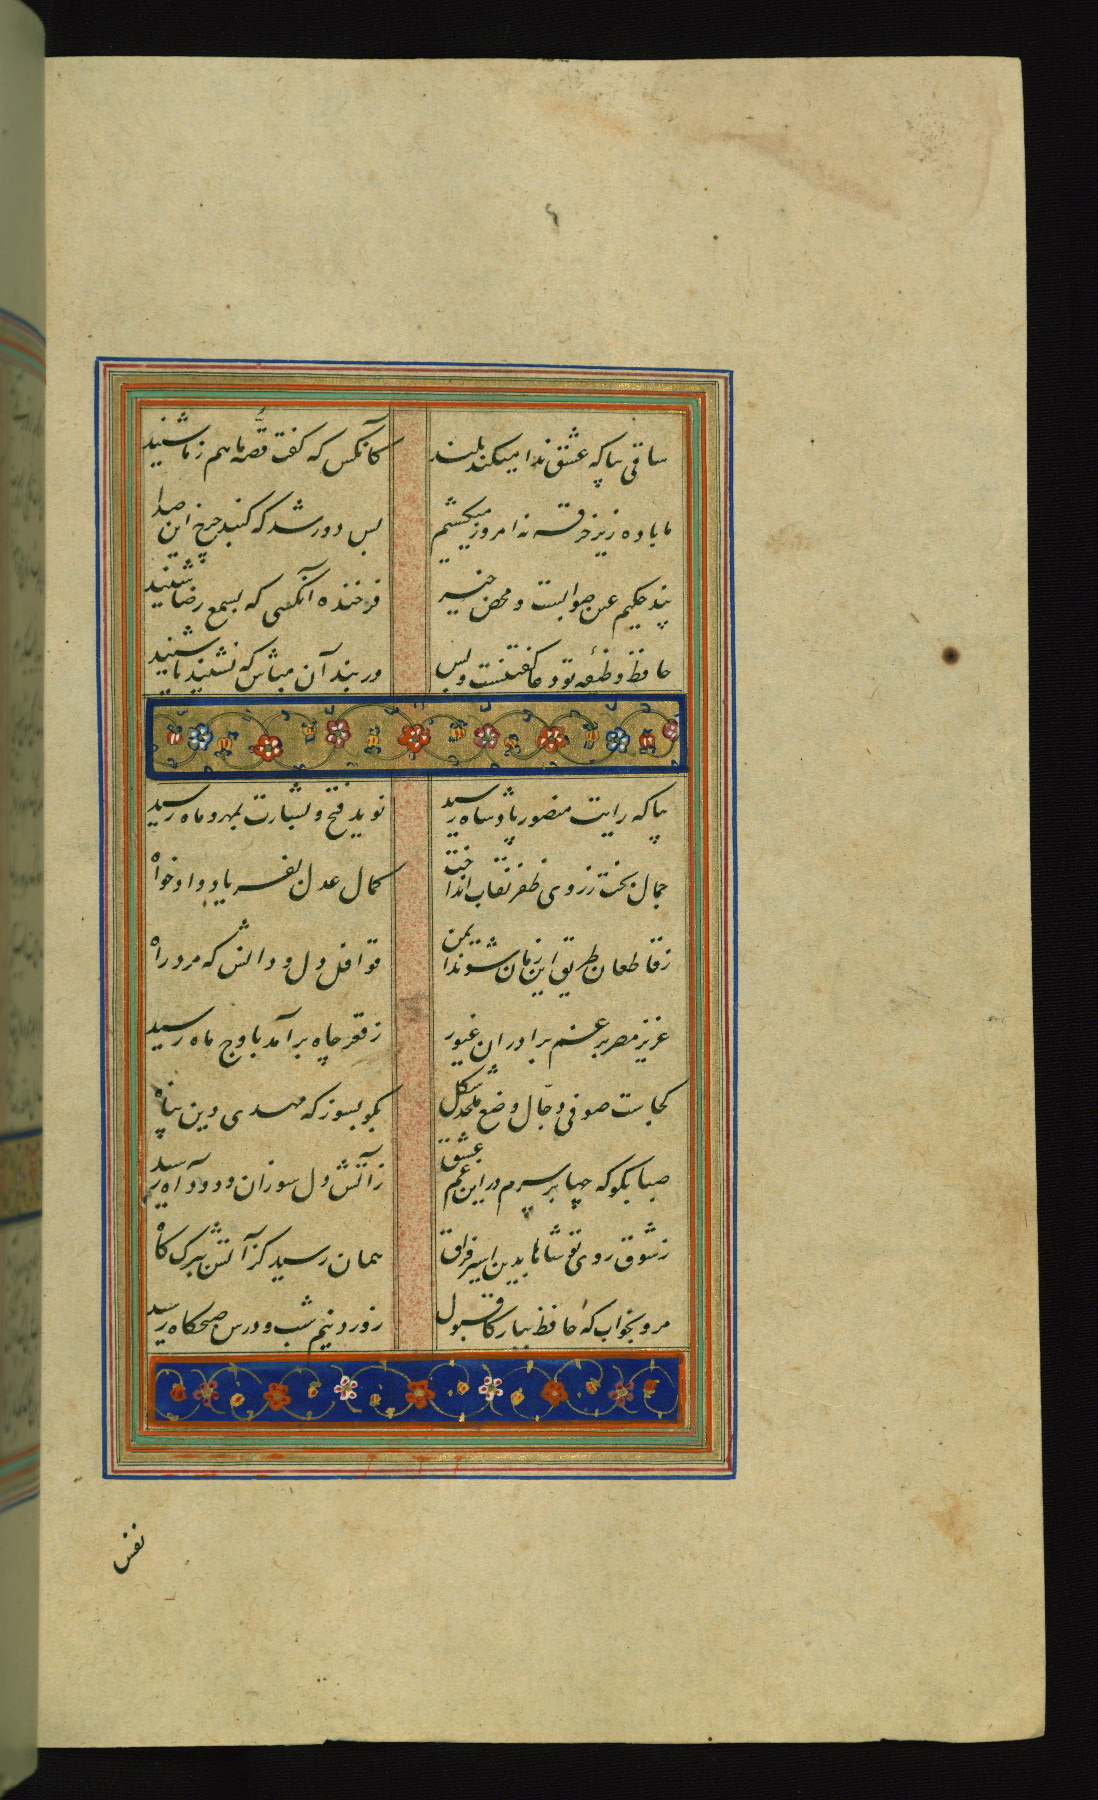 ساقی بیا که عشق ندا میکند بلند کانکس که گفت قصه ما هم ز ما شنید
ما باده زیر خرقه نه امروز میکشیم بس دور شد که گنبد چرخ این صدا شنید
پند حکیم عین صوابست و محض خیر فرخنده آنکسی که بسمع رضا شنید
حافظ وظیفه تو دعا گفتنست و بس دربند آن مباش که نشنید یا شنید
بیا که رایت منصور پادشاه رسید نوید فتح و بشارت بمهر و ماه رسید
جمال بخت ز روی ظفر نقاب انداخت کمال عدل بفریاد دادخواه
ز قاطعان طریق این زمان شوند ایمن قوافل دل و دانش که مرد راه
عزیز مصر برغم برادران غیور ز قعر چاه برآمد باوج ماه رسید
کجاست صوفی دجال وضع ملحد شکل بگو بسوز که مهدی دین پناه
صبا بگو که چها بر سرم در این غم عشق ز آتش دل سوزان و دود آه رسید
ز شوق روی تو شاها بدین اسیر فراق همان رسید کز آتش ببرک کاه
مرو بخواب که حافظ ببارگاه قبول ز ورد نیم شب و درس صبحگاه رسید